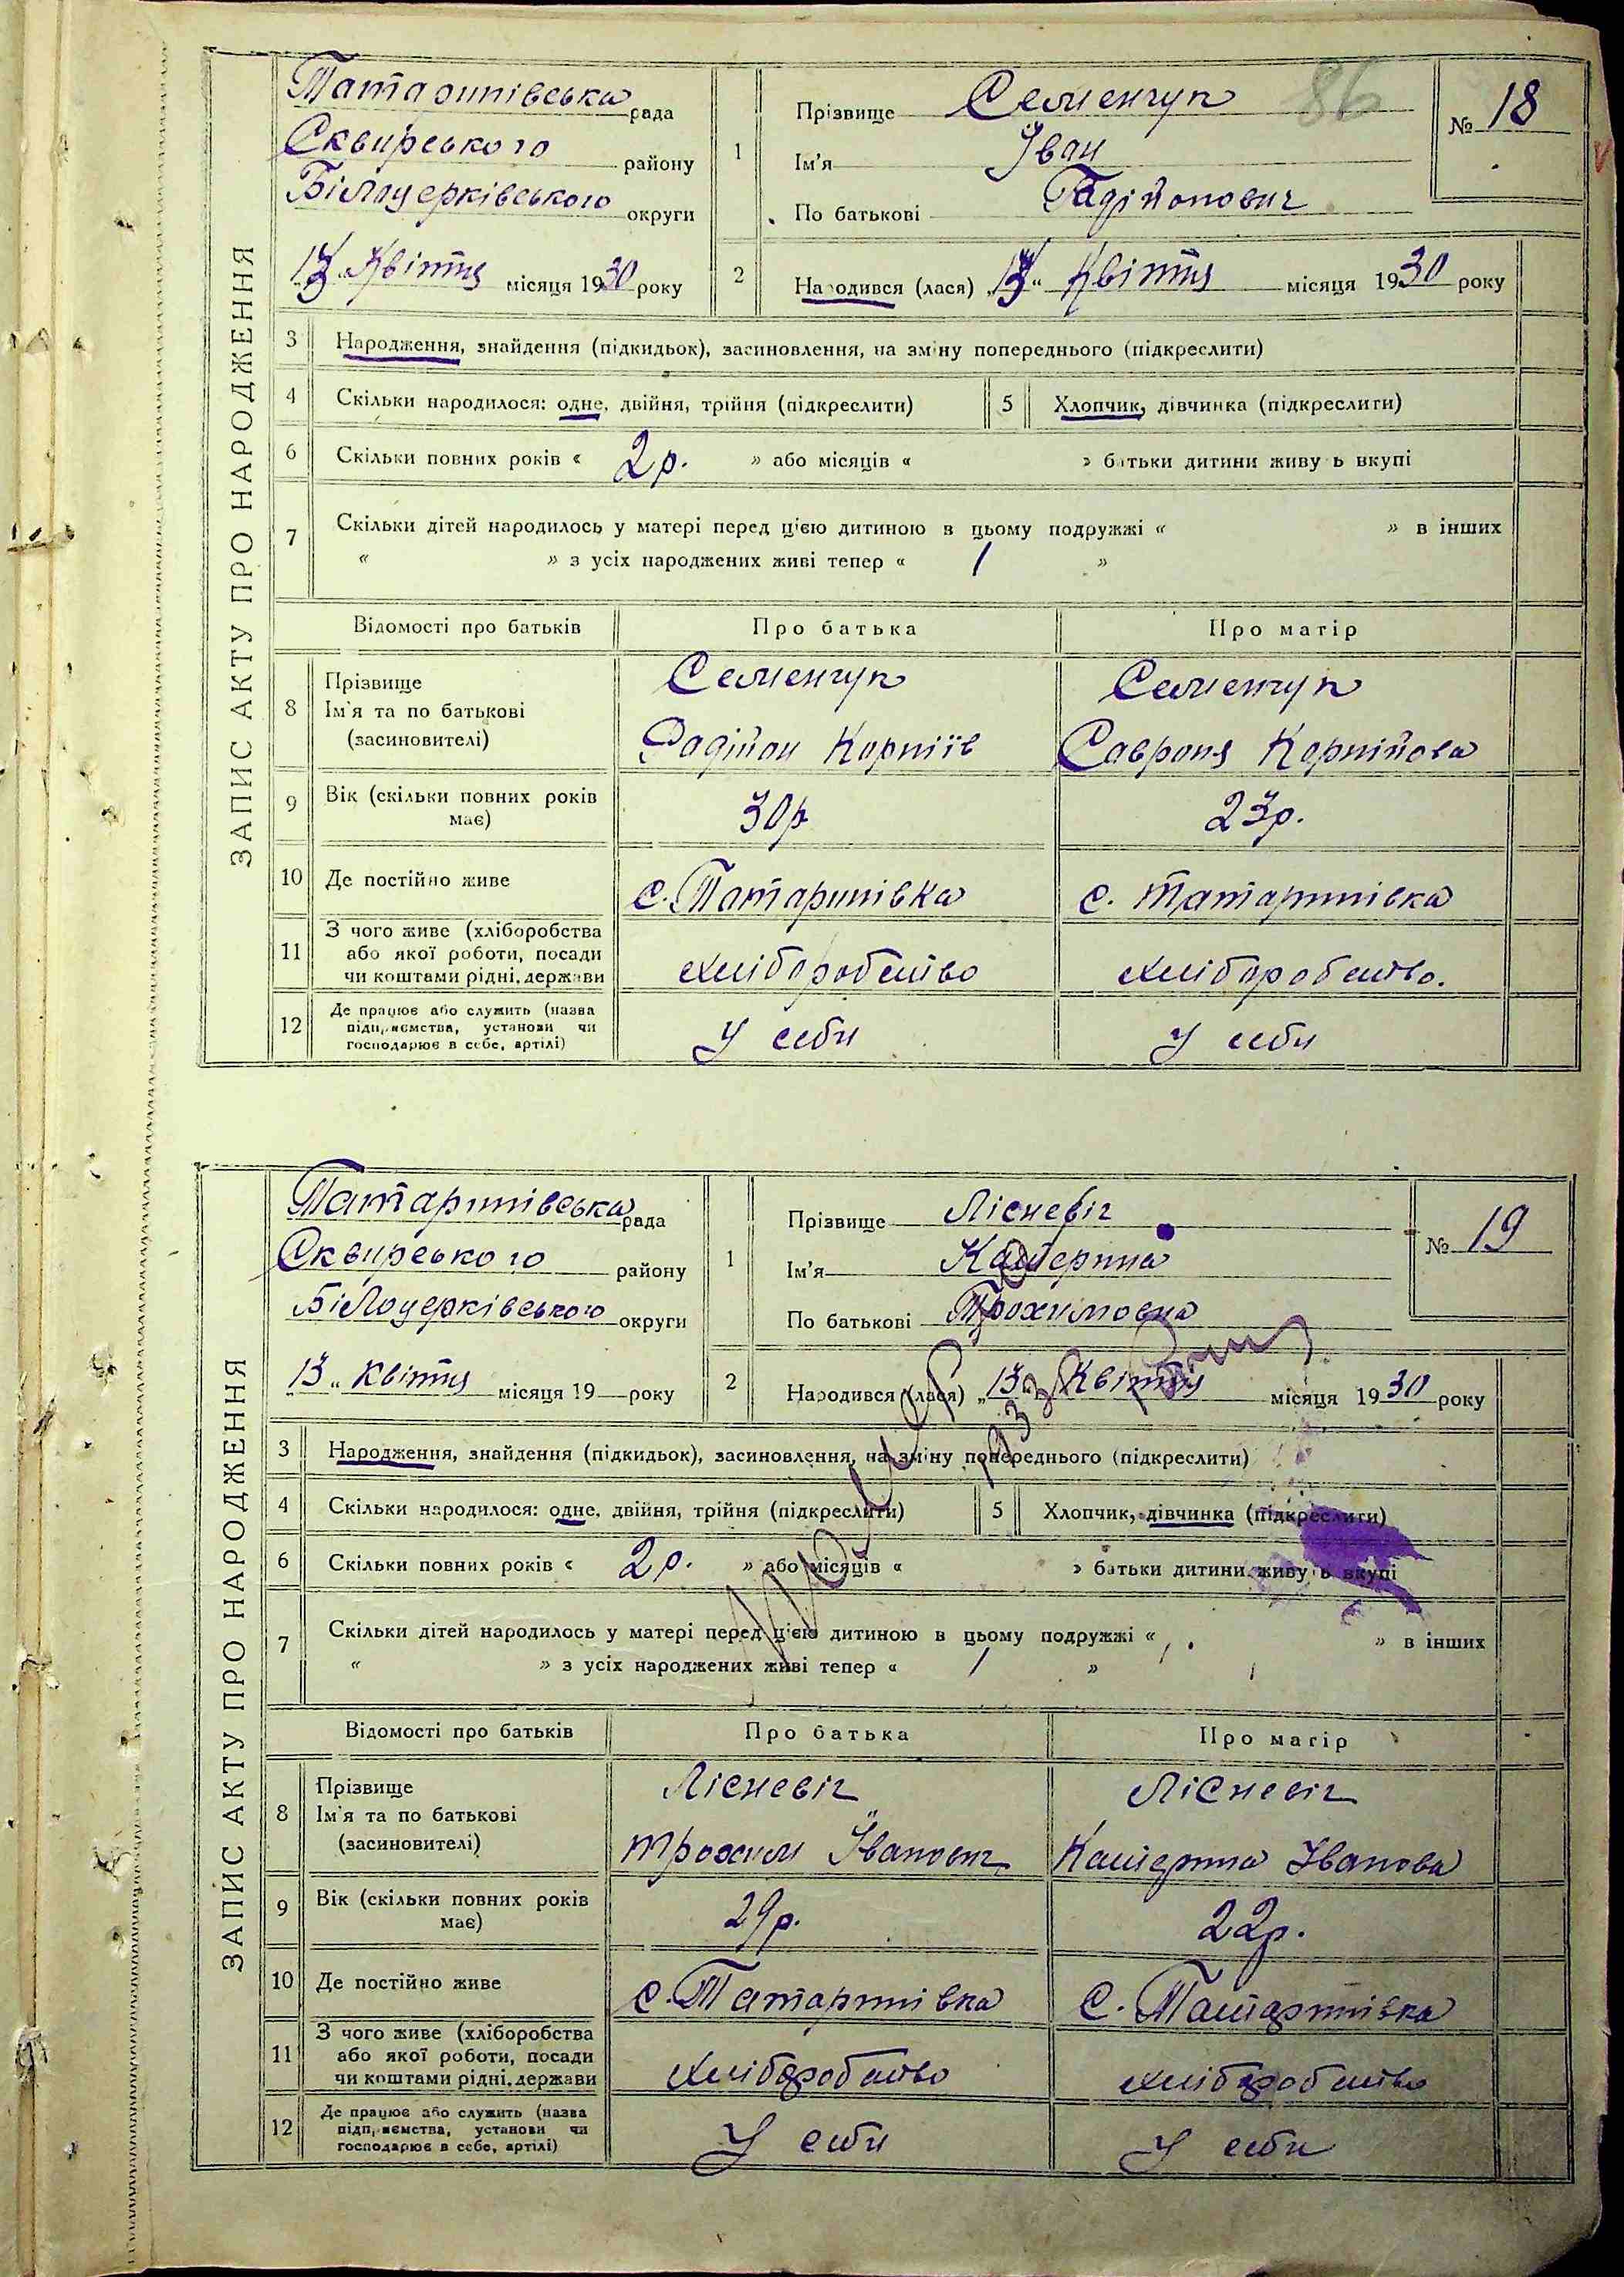 86
ЗАПИС АКТУ ПРО НАРОДЖЕННЯ
Татаринівська рада
Сквирського району
Білоцерківського округи
"13" Квітня місяця 1930 року
1 Прізвище Семенчук
Ім'я Іван
По батькові Радійонович
№ 18
2 Народився (лася) "13" Квітня місяця 1930 року
3 Народження, знайдення (підкидьок), засиновлення, на зміну попереднього (підкреслити)
4 Скільки народилося: одне, двійня, трійня (підкреслити) 5 Хлопчик, дівчинка (підкреслити)
6 Скільки повних років « 2 р. » або місяців « » батьки дитини живуть вкупі
7 Скільки дітей народилось у матері перед цією дитиною в цьому подружжі « » в інших
« » з усіх народжених живі тепер « 1 »
Відомості про батьків Про батька Про матір
8 Прізвище Ім'я та по батькові (засиновителі)
Семенчук Семенчук
Радійон Корніїв Савроня Корнійова
9 Вік (скільки повних років має) 30р 23р.
10 Де постійно живе с. Татаринівка с. Татаринівка
11 З чого живе (хліборобства або якої роботи, посади чи коштами рідні, держави хліборобство хліборобство.
12 Де працює або служить (назва підприємства, установи чи господарює в себе, артілі) У себи У себи
ЗАПИС АКТУ ПРО НАРОДЖЕННЯ
Татаринівська рада
Сквирського району
Білоцерківського округи
"13" квітня місяця 19 — року
1 Прізвище Лісневіч
Ім'я Катерина
По батькові Трохимовна
№ 19
2 Народився (лася) "13" Квітня місяця 1930 року
3 Народження, знайдення (підкидьок), засиновлення, на зміну попереднього (підкреслити)
4 Скільки народилося: одне, двійня, трійня (підкреслити) 5 Хлопчик, дівчинка (підкреслити)
6 Скільки повних років « 2 р. » або місяців « » батьки дитини живуть вкупі
7 Скільки дітей народилось у матері перед цією дитиною в цьому подружжі « 1 » в інших
« » з усіх народжених живі тепер « 1 »
Відомості про батьків Про батька Про матір
8 Прізвище Ім'я та по батькові (засиновителі)
Лісневіч Лісневіч
Трохим Іванович Катерина Іванова
9 Вік (скільки повних років має) 29р. 22р.
10 Де постійно живе с. Татаринівка с. Татаринівка
11 З чого живе (хліборобства або якої роботи, посади чи коштами рідні, держави хліборобство хліборобство
12 Де працює або служить (назва підприємства, установи чи господарює в себе, артілі) У себи У себи